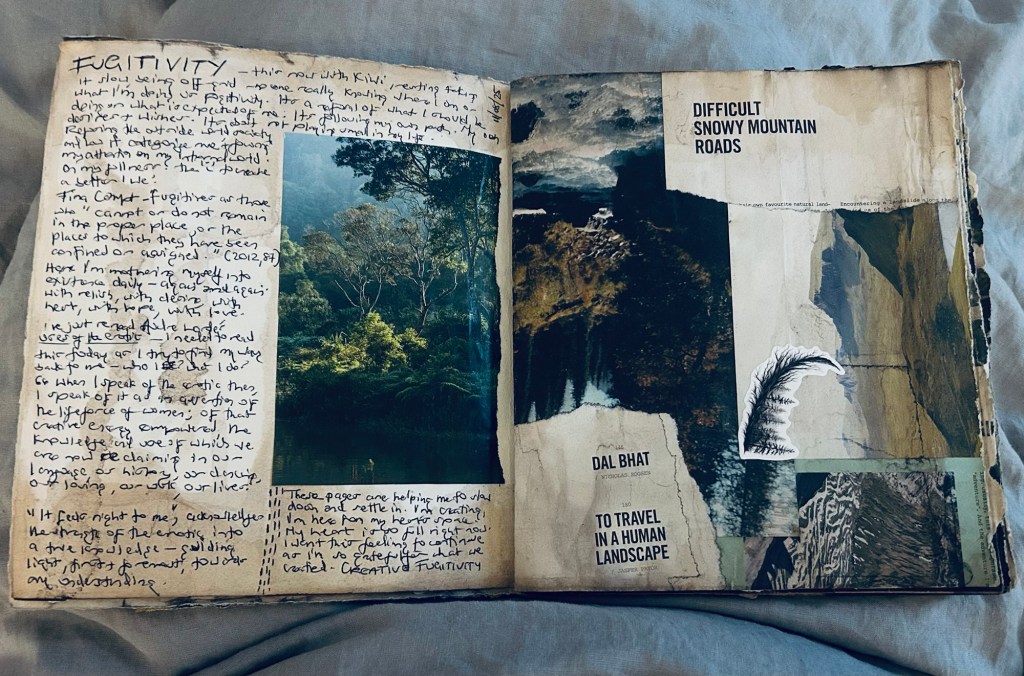 FUGITIVITY – this now with Kiwi
It slow being off grid – no one really knowing where I'm or
what I'm doing is fugitivity. It's a refusal of what I should be
doing or what is expected of me. It's following my own path, my own
desires + wishes. It's about not playing small in my life.
Refusing the outside world
and has it categorise me, focused
my attention on my internal world
on my fullness. The I to create
a better We.
Tina Campt – fugitives as those
who "cannot or do not remain
in the proper place, or the
places to which they have been
confined or assigned." (2012, 87)
Here I'm mothering myself into
existence daily – again and again
with relish, with desire, with
heart, with hope, with love.
I've just reread Audre Lorde's
uses of the erotic – I needed to read
this today as I try to find my way
back to me – who I be what I do
"When I speak of the erotic then
I speak of it as an assertion of
the lifeforce of women; of that
creative energy empowered the
knowledge and use of which we
are now reclaiming in our
language our history, our dancing
our loving, our work our lives."
"It feels right to me", acknowledges
the strength of the erotic into
a true knowledge – guiding
light, towards
any understanding.
These pages are helping me to slow
down and settle in. I'm creating,
I'm here from my heart space.
My heart is too full right now.
I want this feeling to continue
as I'm so grateful for what we
created – CREATIVE FUGITIVITY
DIFFICULT
SNOWY MOUNTAIN
ROADS
own favourite natural land-
Encountering a landslide
DAL BHAT
TO TRAVEL
IN A HUMAN
LANDSCAPE